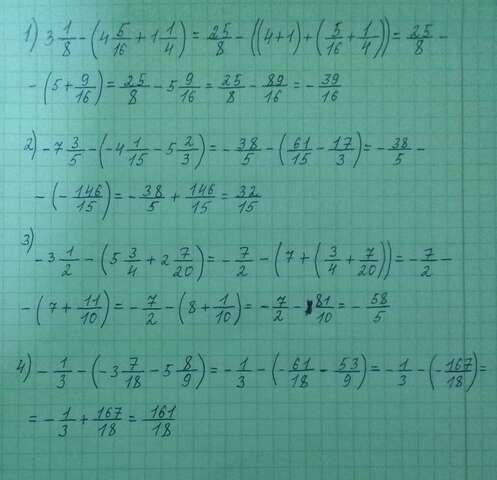 1) 3 1/8 - (4 5/16 + 1 1/4) = 25/8 - ((4+1) + (5/16 + 1/4)) = 25/8 -
- (5 + 9/16) = 25/8 - 5 9/16 = 25/8 - 89/16 = - 39/16
2) -7 3/5 - (-4 1/15 - 5 2/3) = - 38/5 - (61/15 - 17/3) = - 38/5 -
- (- 146/15) = - 38/5 + 146/15 = 32/15
3) -3 1/2 - (5 3/4 + 2 7/20) = - 7/2 - (7 + (3/4 + 7/20)) = - 7/2 -
- (7 + 11/10) = - 7/2 - (8 + 1/10) = - 7/2 - 81/10 = - 58/5
4) - 1/3 - (-3 7/18 - 5 8/9) = - 1/3 - (- 61/18 - 53/9) = - 1/3 - (- 167/18) =
= - 1/3 + 167/18 = 161/18